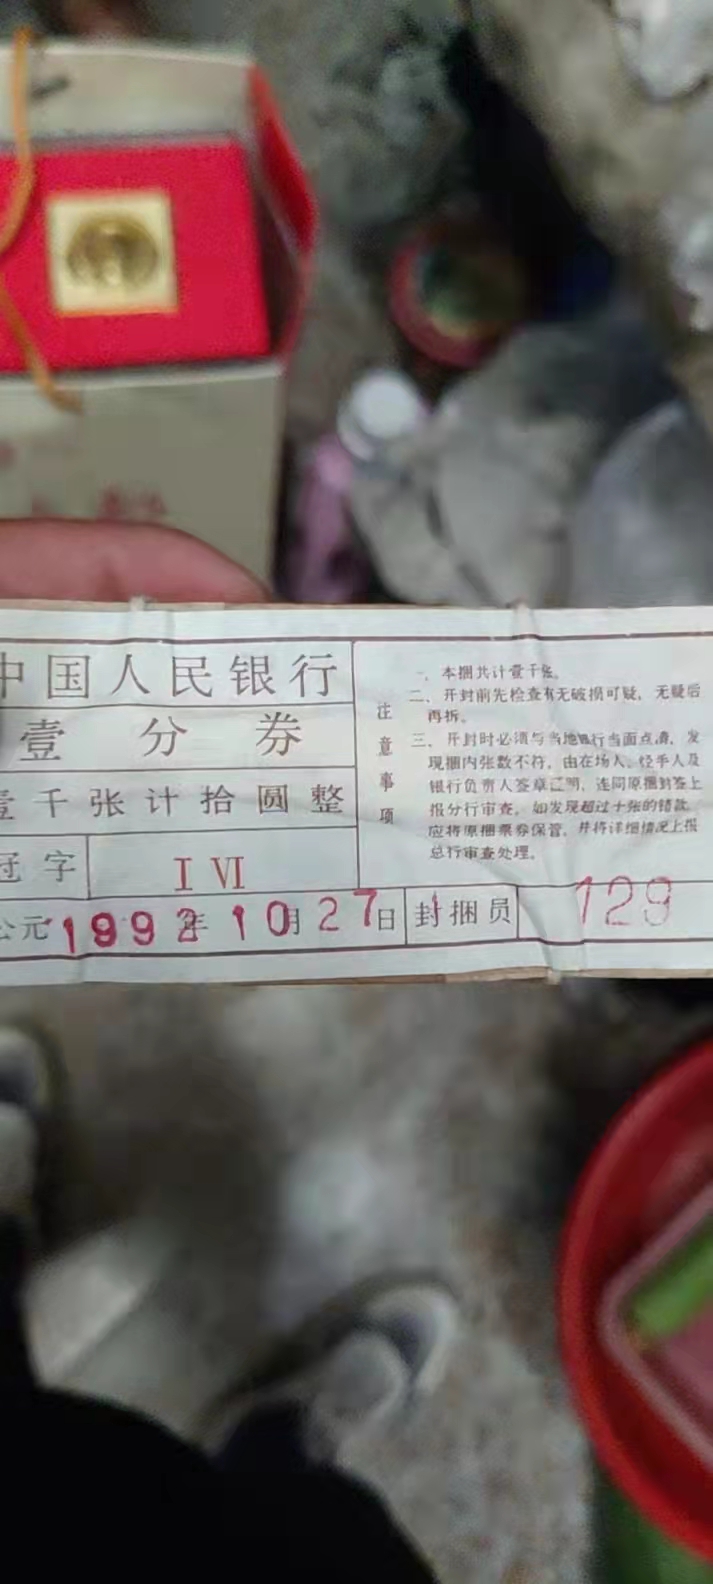 中国人民银行
壹分券
壹千张计拾圆整
冠字 I VI
公元1992年10月27日 封捆员 129
注意事项
一、本捆共计壹千张。
二、开封前先检查有无破损可疑，无疑后
再拆。
三、开封时必须与当地银行当面点清，发
现捆内张数不符，由在场人、经手人及
银行负责人签章证明，连同原捆封签上
报分行审查。如发现超过十张的错款，
应将原捆票券保管，并将详细情况上报
总行审查处理。